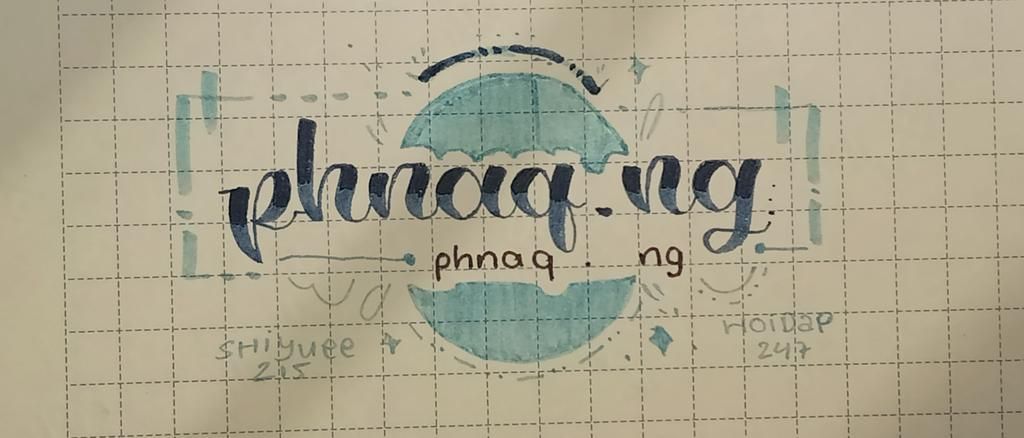 phnaq.ng
phnaq . ng
SHIYUEE
215
HOIDAP
247